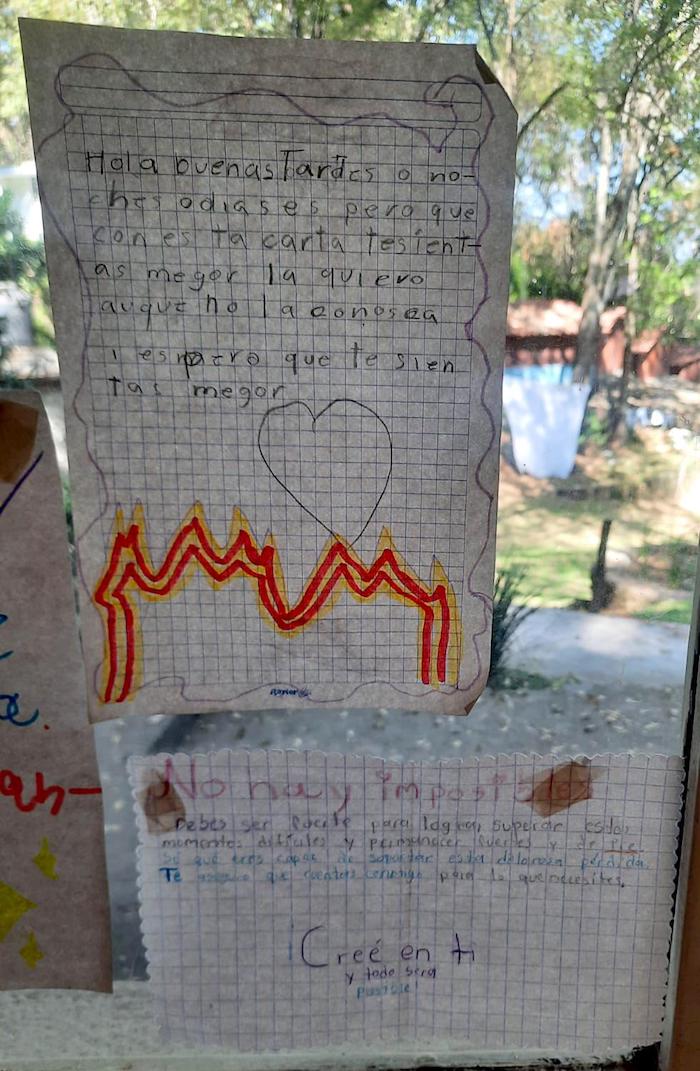 Hola buenas Tardes o no-
ches odias es pero que
con es ta carta tesient-
as megor la quiero
auque no la conosca
i espero que te sien
tas megor
No hay imposibles
Debes ser fuerte para lograr superar estos
momentos dificiles y permanecer fuertes y de pie.
Sé que eres capaz de soportar esta dolorosa pérdida.
Te aseguro que cuentas conmigo para lo que necesites.
¡Creé en ti
y todo será
posible!